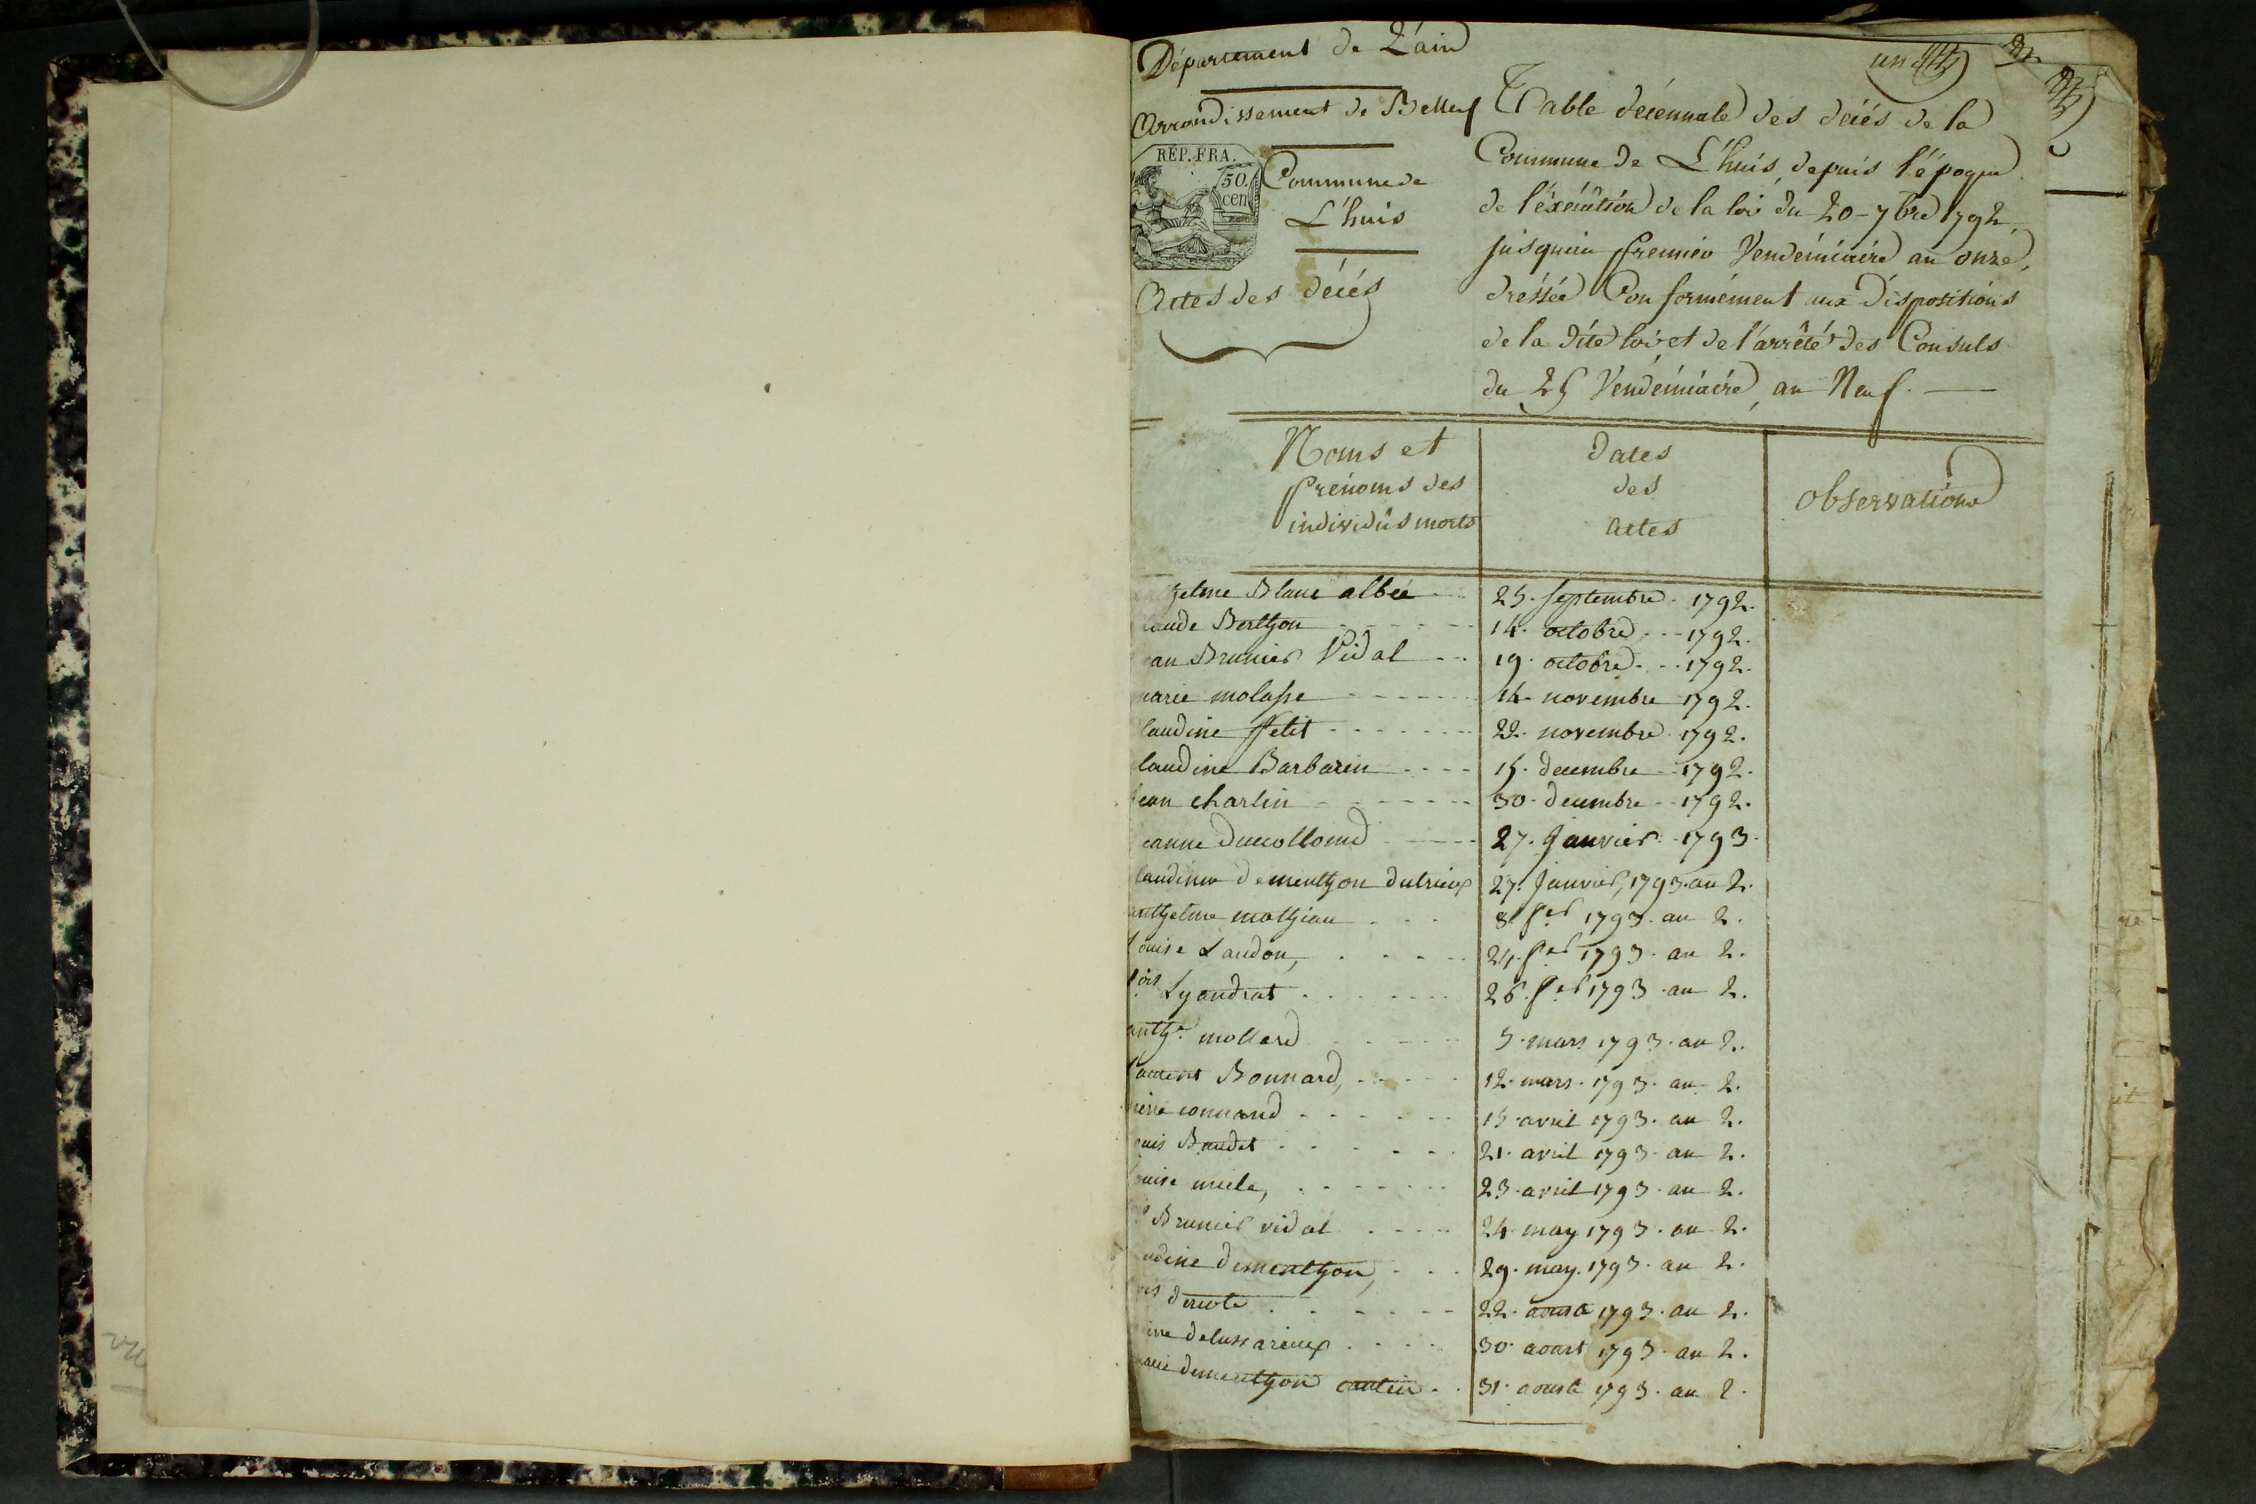 Département de L'ain
Arrondissement de Belley
RÉP. FRA.
50
cen
Commune de
L'huis
Actes des décés
un
Table décennale des décés de la
Commune de L'huis, depuis l'époque
de l'éxécution de la loi du 20 - 7bre 1792,
jusqu'au premier Vendémiaire an onze,
dréssée Conformément aux dispositions
de la dite loi et de l'arrêté des Consuls
du 25 Vendémiaire, an Neuf.
Noms et
prénoms des
individûs morts
dates
des
actes
observations
thelme Blanc albée 25. septembre. 1792.
laude Berthon 14. octobre 1792.
ean Brunier Vidal 19. octobre 1792.
marie molasse 14. novembre 1792.
laudine petit 22. novembre 1792.
laudine Barbarin 15. decembre 1792.
jean charlin 30. decembre 1792.
eanne ducollomd 27. Janvier 1793.
laudine dementhon dutrieux 27. Janvier, 1793. an 2.
anthelme mathian 8 fer 1793. an 2.
Louise Landon, 24. fer 1793. an 2.
fois Lyaudrat 26. fer 1793. an 2.
anthe. mollard 5. mars 1793. an 2.
Laurent Bonnard, 12. mars. 1793. an 2.
pierre connard 15 avril 1793. an 2.
ouis Baudet 21. avril 1793. an 2.
ouise miele, 23. avril 1793. an 2.
Brunier vidal 24. may 1793. an 2.
audine dementhon, 29. may. 1793. an 2.
22. aoust 1793. an 2.
30. aoust 1793. an 2.
marie dementhon cantin 31. aoust 1793. an 2.